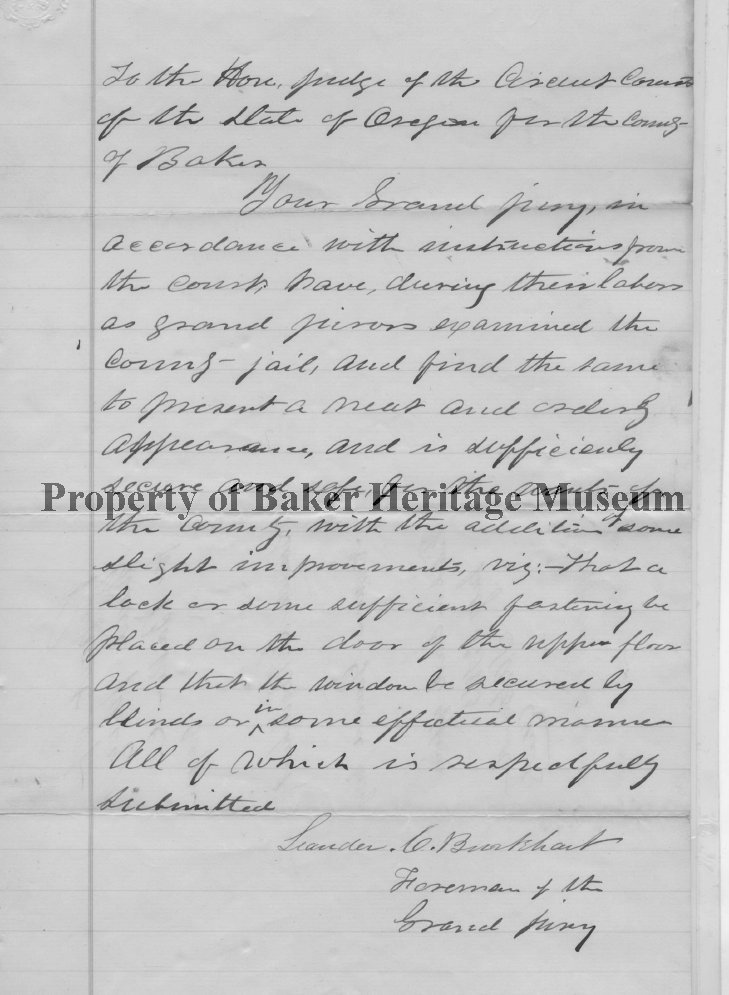 To the Hon. Judge of the Circuit Court
of the State of Oregon for the County
of Baker
Your Grand jury, in
accordance with instructions from
the court, have, during their labors
as grand jurors examined the
County jail, and find the same
to present a neat and orderly
appearance, and is sufficiently
secure and safe for the wants of
Property of Baker Heritage Museum
the County, with the addition of some
slight improvements, viz:- That a
lock or some sufficient fastening be
placed on the door of the upper floor
and that the window be secured by
blinds or in some effectual manner
All of which is respectfully
submitted
Leander C. Burkhart
Foreman of the
Grand jury